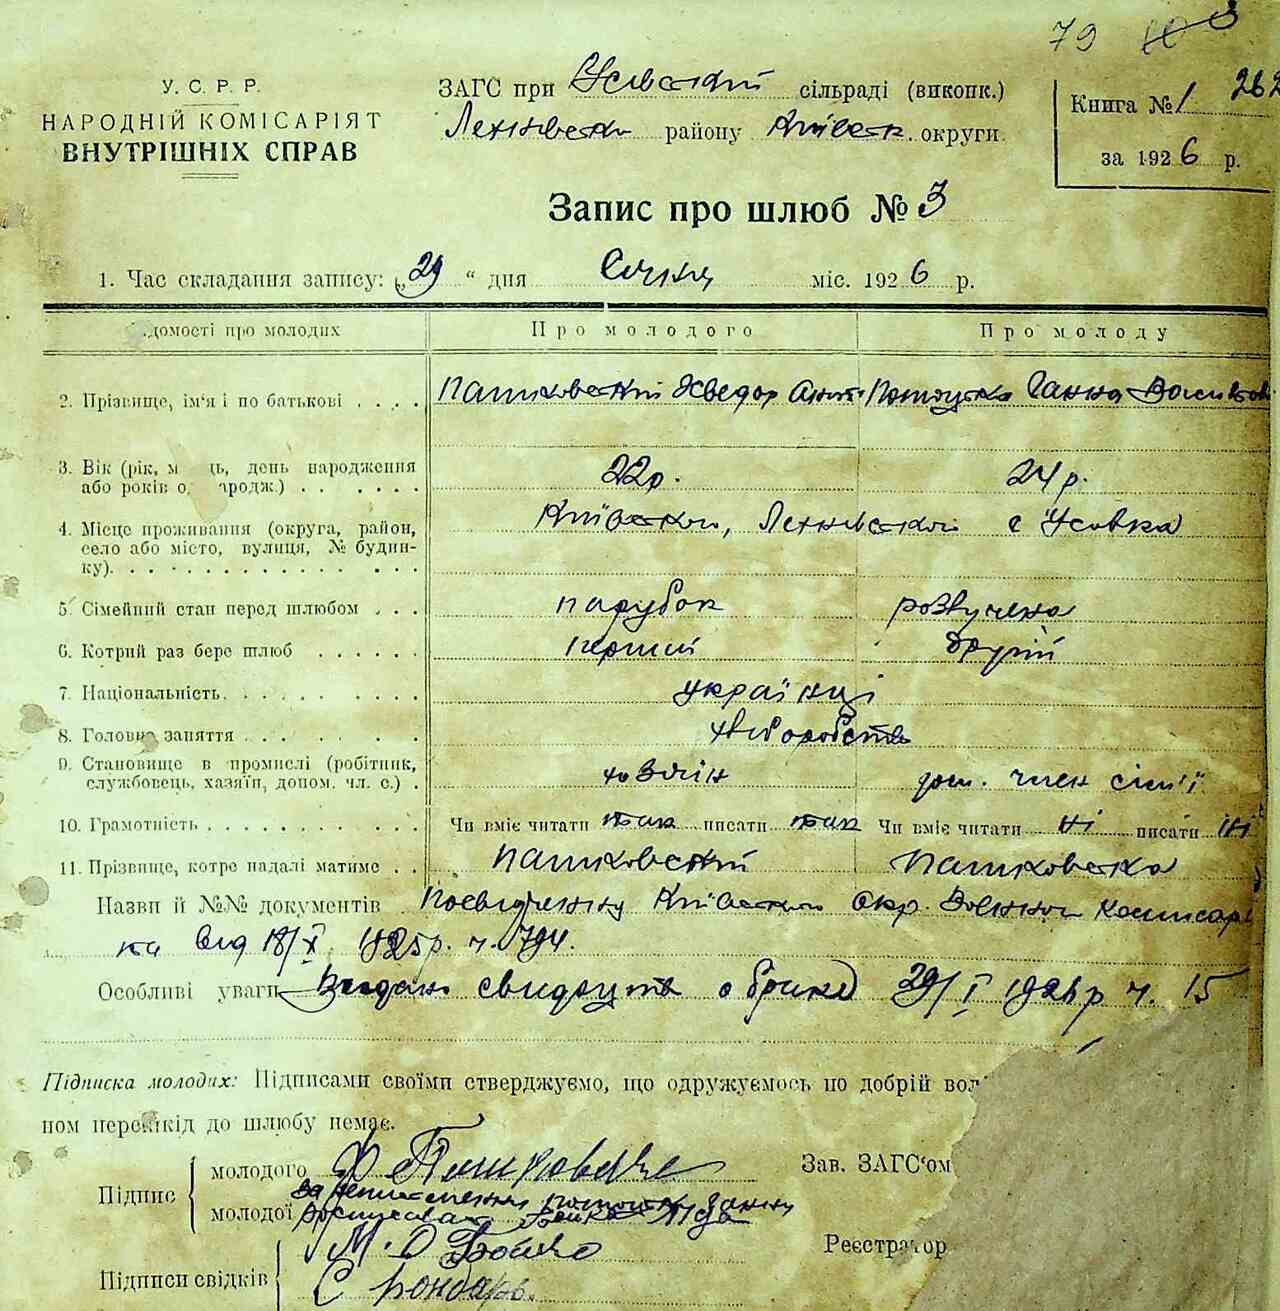 79
У. С. Р. Р.
НАРОДНІЙ КОМІСАРІЯТ
ВНУТРІШНІХ СПРАВ
ЗАГС при Усівській сільраді (виконк.)
району Київськ. округи.
Книга № 1 262
за 1926 р.
Запис про шлюб № 3
1. Час складання запису: „29“ дня Січня міс. 1926 р.
домості про молодих Про молодого Про молоду
2. Прізвище, ім'я і по батькові . . . . Пашковский Хведор Ант. Ганна
3. Вік (рік, м ць, день народження 22 р. 24 р.
або років о ародж.) . . . . . .
4. Місце проживання (округа, район, Київской, с Усовка
село або місто, вулиця, № будин-
ку). . . . . . . . . . . . . . .
5. Сімейний стан перед шлюбом . . . парубок розвучена
6. Котрий раз бере шлюб . . . . . . перший другий
7. Національність. . . . . . . . . . українці
8. Головне заняття . . . . . . . . хліборобств
9. Становище в промислі (робітник,
службовець, хазяїн, допом. чл. с.) . хозяїн доп. член сім'ї
10. Грамотність . . . . . . . . . . . Чи вміє читати так писати так Чи вміє читати ні писати ні
11. Прізвище, котре надалі матиме . . Пашковский Пашковска
Назви й №№ документів Посвидчення Київского Окр. Военного Комисарі
та від 18/X 1925 р. ч. 794.
Особливі уваги Видано свидоцтв о браке 29/I 1926 р ч. 15
Підписка молодих: Підписами своїми стверджуємо, що одружуємось по добрій вол
ном перешкід до шлюбу немає.
Підпис
молодого Ф
молодої
Зав. ЗАГС'ом
Реєстратор
Підписи свідків М. О Бойко
С Бондар.